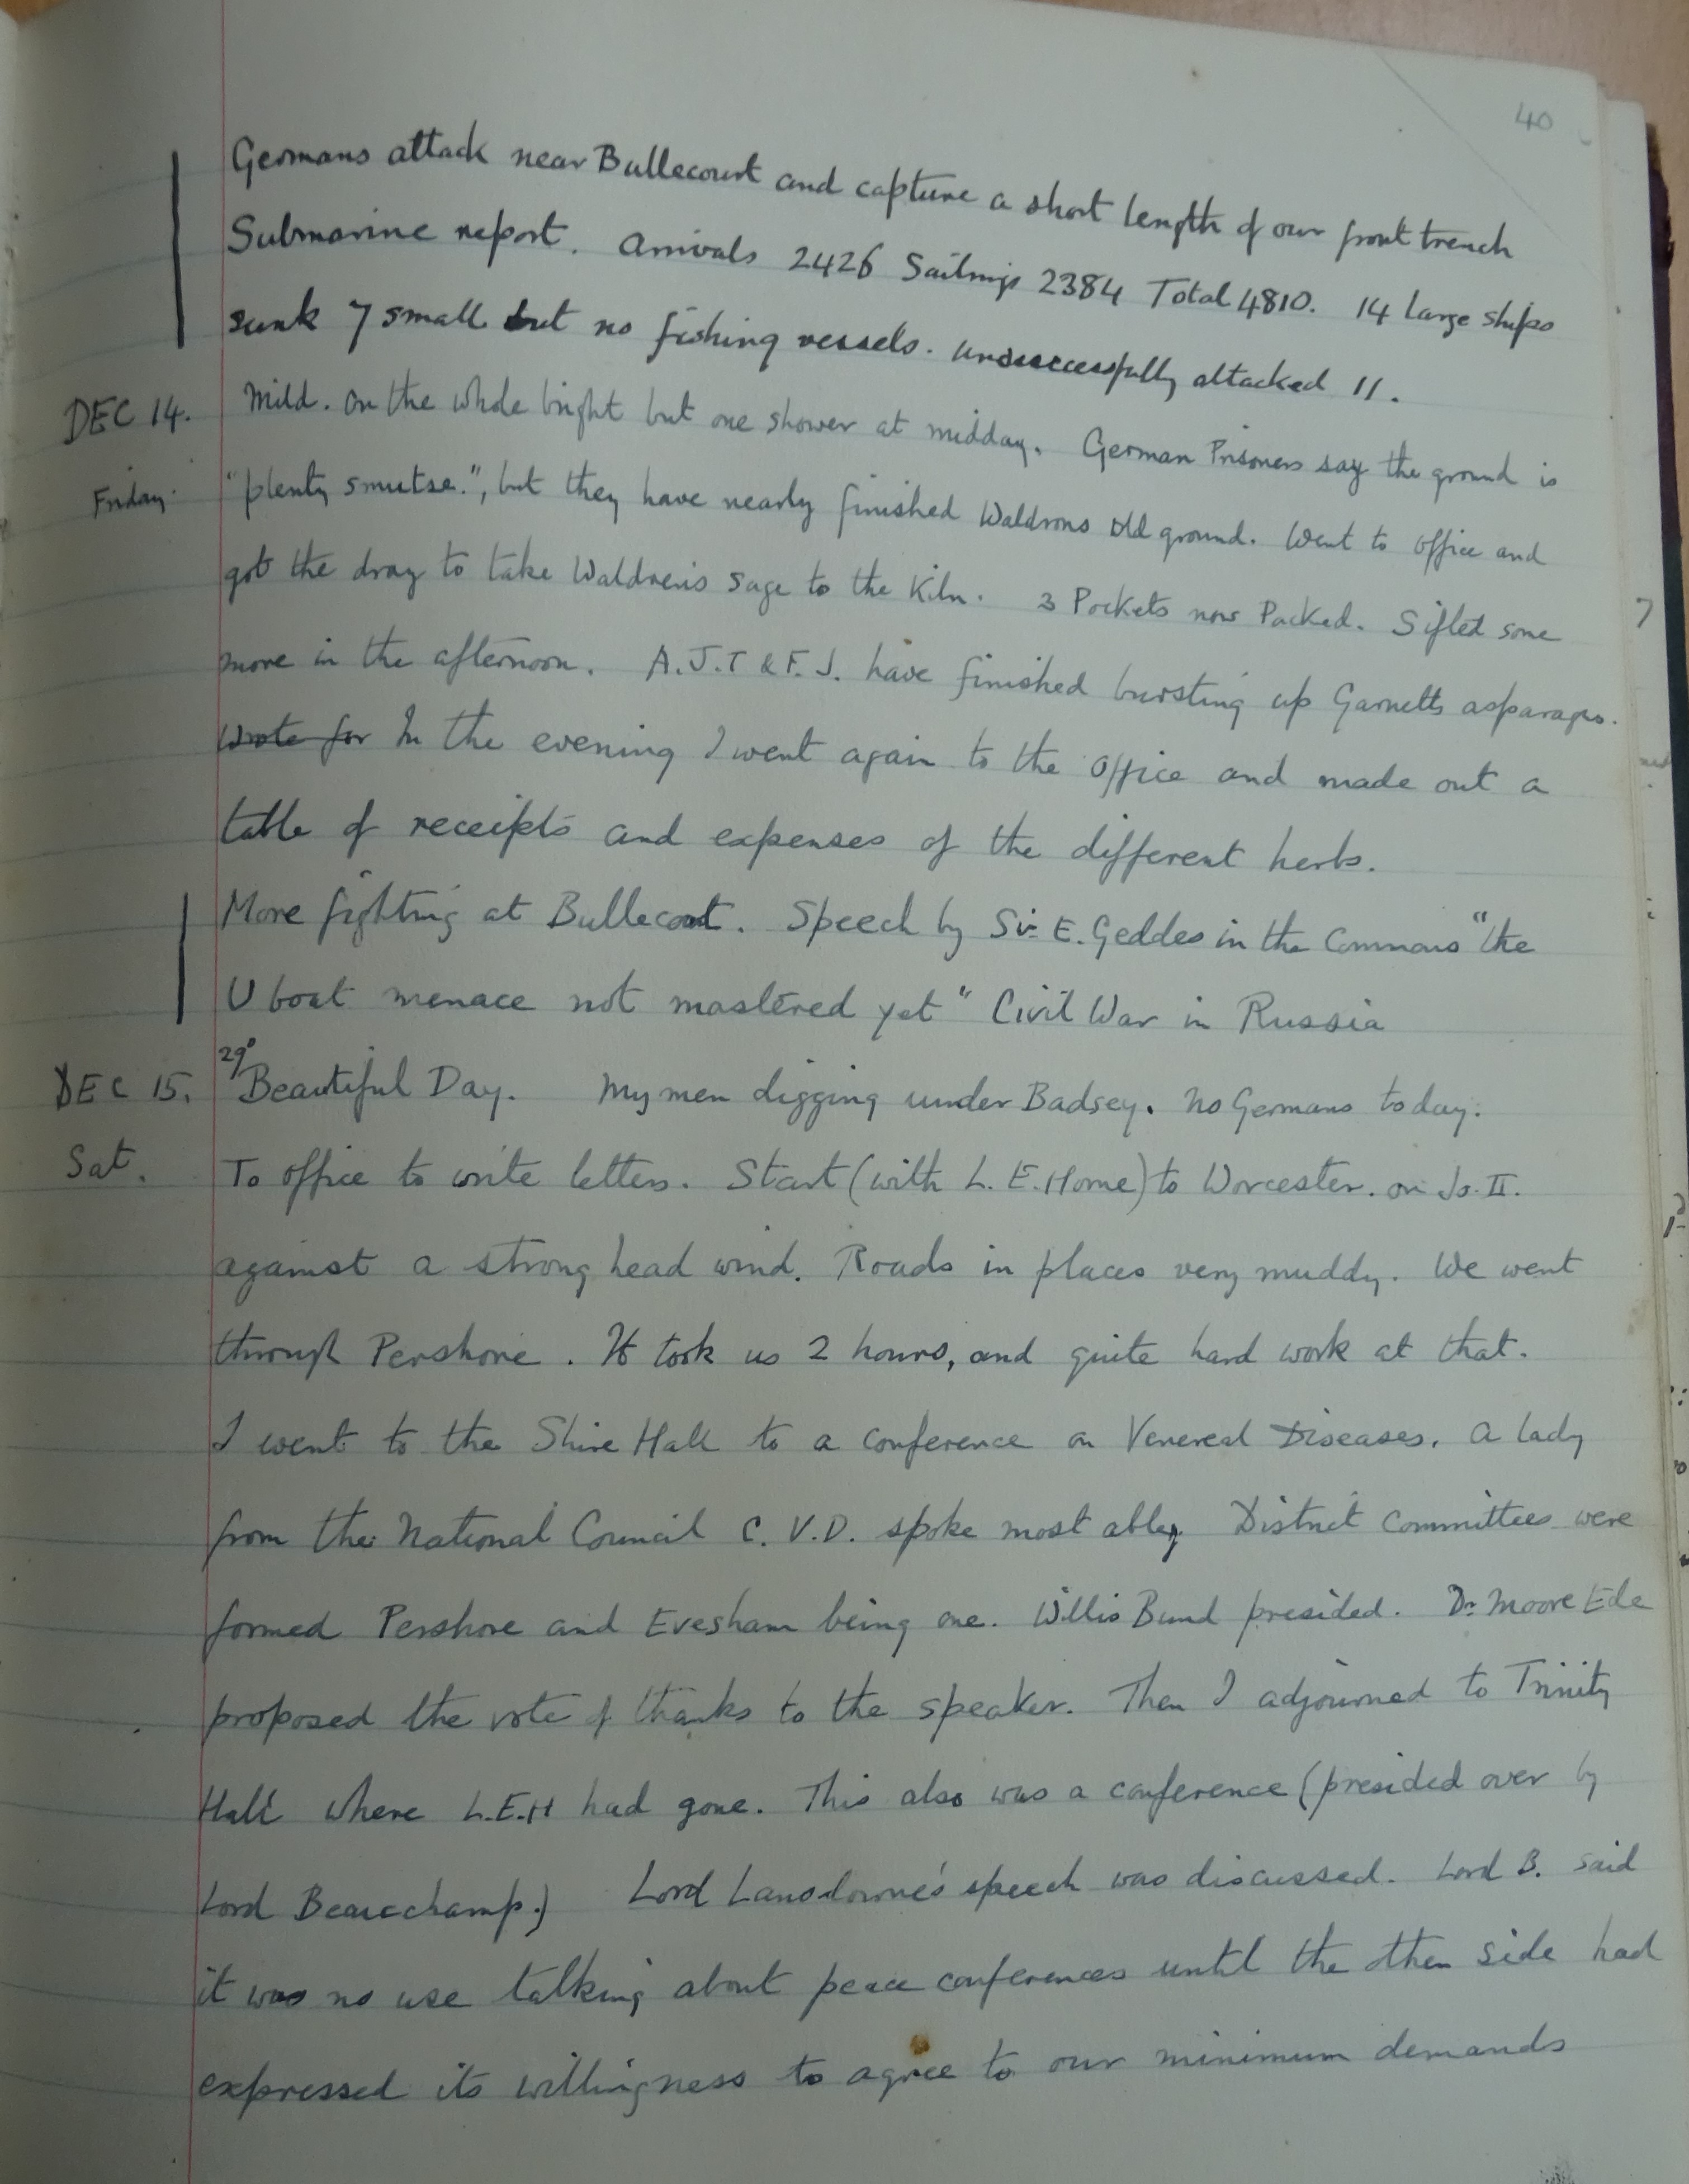 40
Germans attack near Bullecourt and capture a short length of our front trench
Submarine report. Arrivals 2426 Sailings 2384 Total 4810. 14 large ships
sunk 7 small but no fishing vessels. unsuccessfully attacked 11.
DEC 14. Mild. On the whole bright but one shower at midday. German Prisoners say the ground is
Friday. "plenty smutse.", but they have nearly finished Waldrons old ground. Went to office and
got the dray to take Waldren's sage to the Kiln. 3 Pockets now Packed. Sifted some
more in the afternoon. A.J.T & F.J. have finished bursting up Garnetts asparagus.
Wrote for In the evening I went again to the office and made out a
table of receipts and expenses of the different herbs.
More fighting at Bullecourt. Speech by Sir E. Geddes in the Commons "the
U boat menace not mastered yet" Civil War in Russia
29°
DEC 15. Beautiful Day. My men digging under Badsey. No Germans today.
Sat. To office to write letters. Start (with L. E. Horne) to Worcester. on Jo. II.
against a strong head wind. Roads in places very muddy. We went
through Pershore. It took us 2 hours, and quite hard work at that.
I went to the Shire Hall to a conference on Venereal Diseases. A lady
from the National Council C. V. D. spoke most ably. District committees were
formed Pershore and Evesham being one. Willis Bund presided. Dr Moore Ede
proposed the vote of thanks to the speaker. Then I adjourned to Trinity
Hall where L.E.H had gone. This also was a conference (presided over by
Lord Beauchamp.) Lord Lansdowne's speech was discussed. Lord B. said
it was no use talking about peace conferences until the other side had
expressed its willingness to agree to our minimum demands